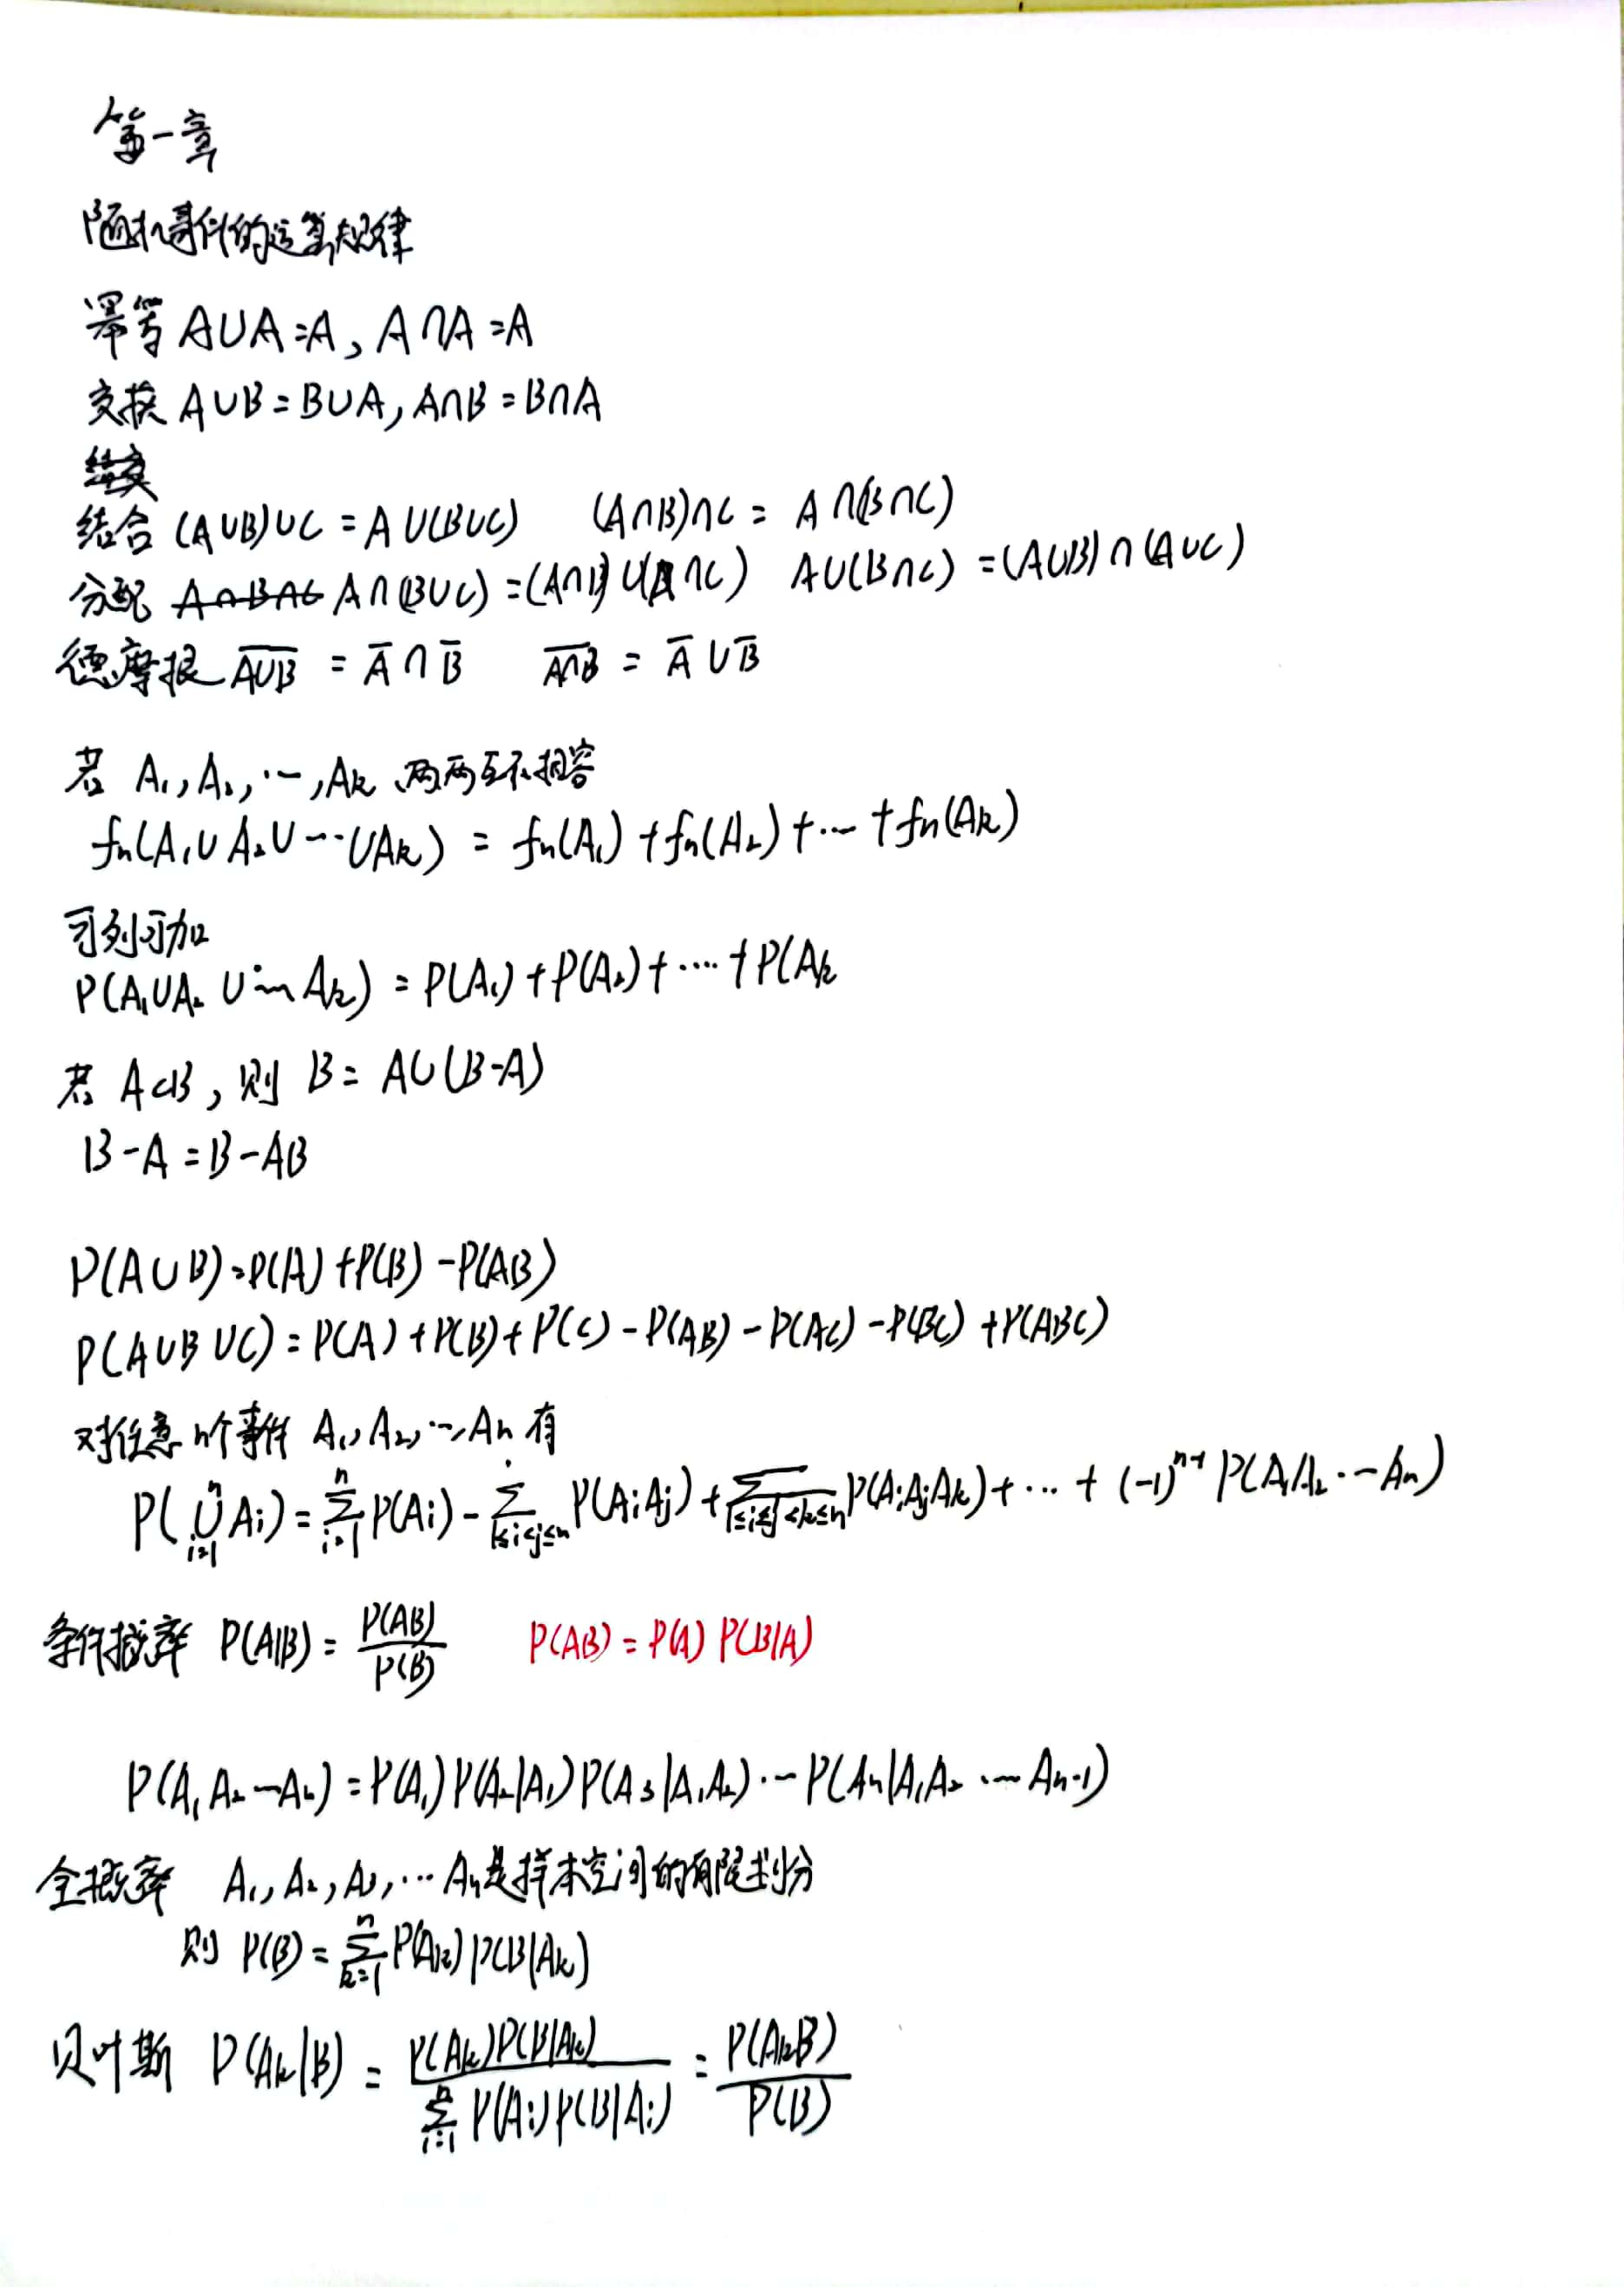 第一章
随机事件的运算规律
幂等 A∪A=A, A∩A=A
交换 A∪B=B∪A, A∩B=B∩A
结合 (A∪B)∪C = A∪(B∪C) (A∩B)∩C = A∩(B∩C)
分配 A∩(B∪C)=(A∩B)∪(A∩C) A∪(B∩C)=(A∪B)∩(A∪C)
德摩根 \overline{A∪B} = \overline{A}∩\overline{B} \overline{A∩B} = \overline{A}∪\overline{B}
若 A₁,A₂,…,Aₖ 两两互不相容
fₙ(A₁∪A₂∪…∪Aₖ) = fₙ(A₁)+fₙ(A₂)+…+fₙ(Aₖ)
可列可加
P(A₁∪A₂∪…Aₖ) = P(A₁)+P(A₂)+…+P(Aₖ
若 A⊂B, 则 B = A∪(B-A)
B-A=B-AB
P(A∪B)=P(A)+P(B)-P(AB)
P(A∪B∪C)=P(A)+P(B)+P(C)-P(AB)-P(AC)-P(BC)+P(ABC)
对任意n个事件 A₁,A₂,…,Aₙ 有
P(\bigcup_{i=1}^{n}A_i)=\sum_{i=1}^{n}P(A_i)-\sum_{1≤i<j≤n}P(A_iA_j)+\sum_{1≤i≤j<k≤n}P(A_iA_jA_k)+…+(-1)^{n-1}P(A₁A₂…Aₙ)
条件概率 P(A|B)=\frac{P(AB)}{P(B)} P(AB)=P(A)P(B|A)
P(A₁A₂…Aₙ)=P(A₁)P(A₂|A₁)P(A₃|A₁A₂)…P(Aₙ|A₁A₂…Aₙ₋₁)
全概率 A₁,A₂,A₃,…Aₙ是样本空间的有限划分
则 P(B)=\sum_{k=1}^{n}P(A_k)P(B|A_k)
贝叶斯 P(A_k|B)=\frac{P(A_k)P(B|A_k)}{\sum_{i=1}^{n}P(A_i)P(B|A_i)}=\frac{P(A_kB)}{P(B)}